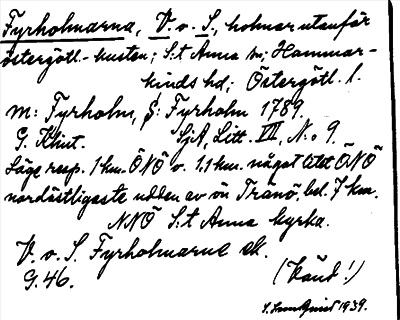 Fyrholmarna, V. o. S., holmar utanför
östergötl. kusten; S:t Anna sn; Hammar-
kinds hd; Östergötl. l.
m: Fyrholm, s: Fyrholm 1789.
G. Klint. SjA, Litt. III, N:o 9.
Läge resp. 1 km. ÖNÖ o. 1.1 km. något ÖNÖ
nordöstligaste udden av ön Tränö, bel. 7 km.
NNÖ S:t Anna kyrka.
V. o. S. Fyrholmarne ek.
G. 46. (Känd!)
1939.